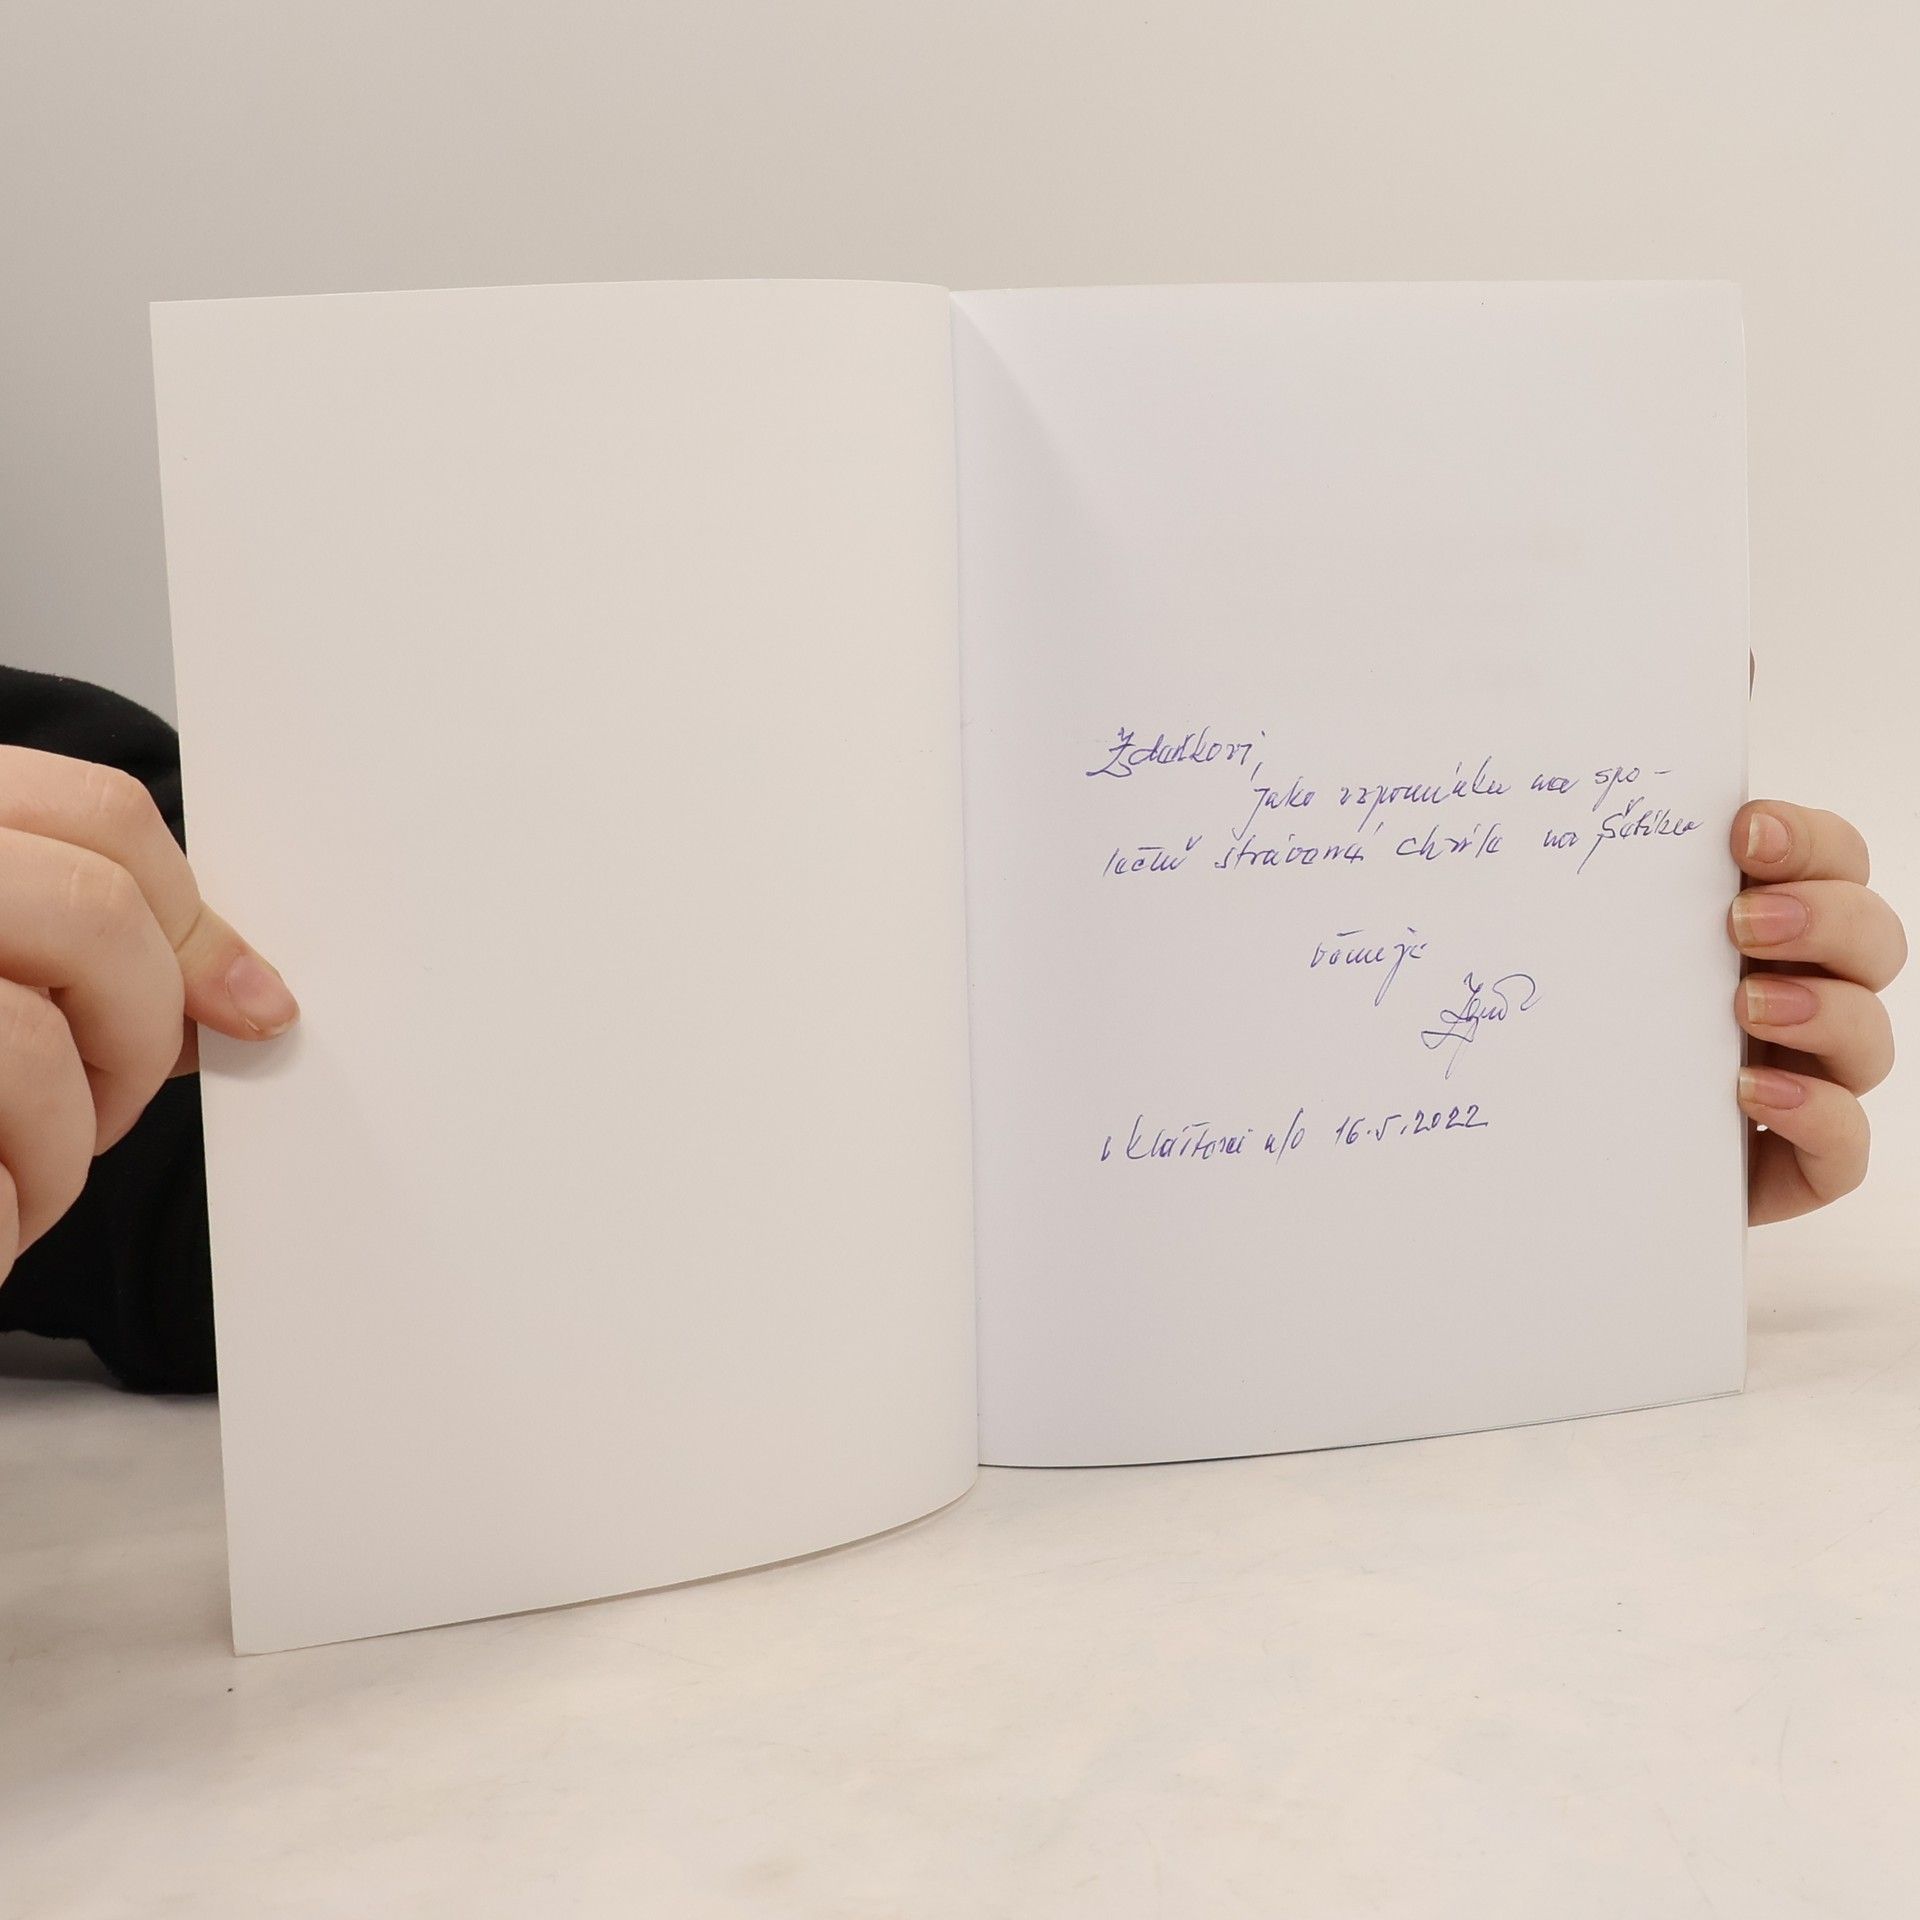 Zdeňkovi,
jako vzpomínku na spo-
lečně strávené chvíle na
věnuje
v Klášterci n/O 16.5.2022